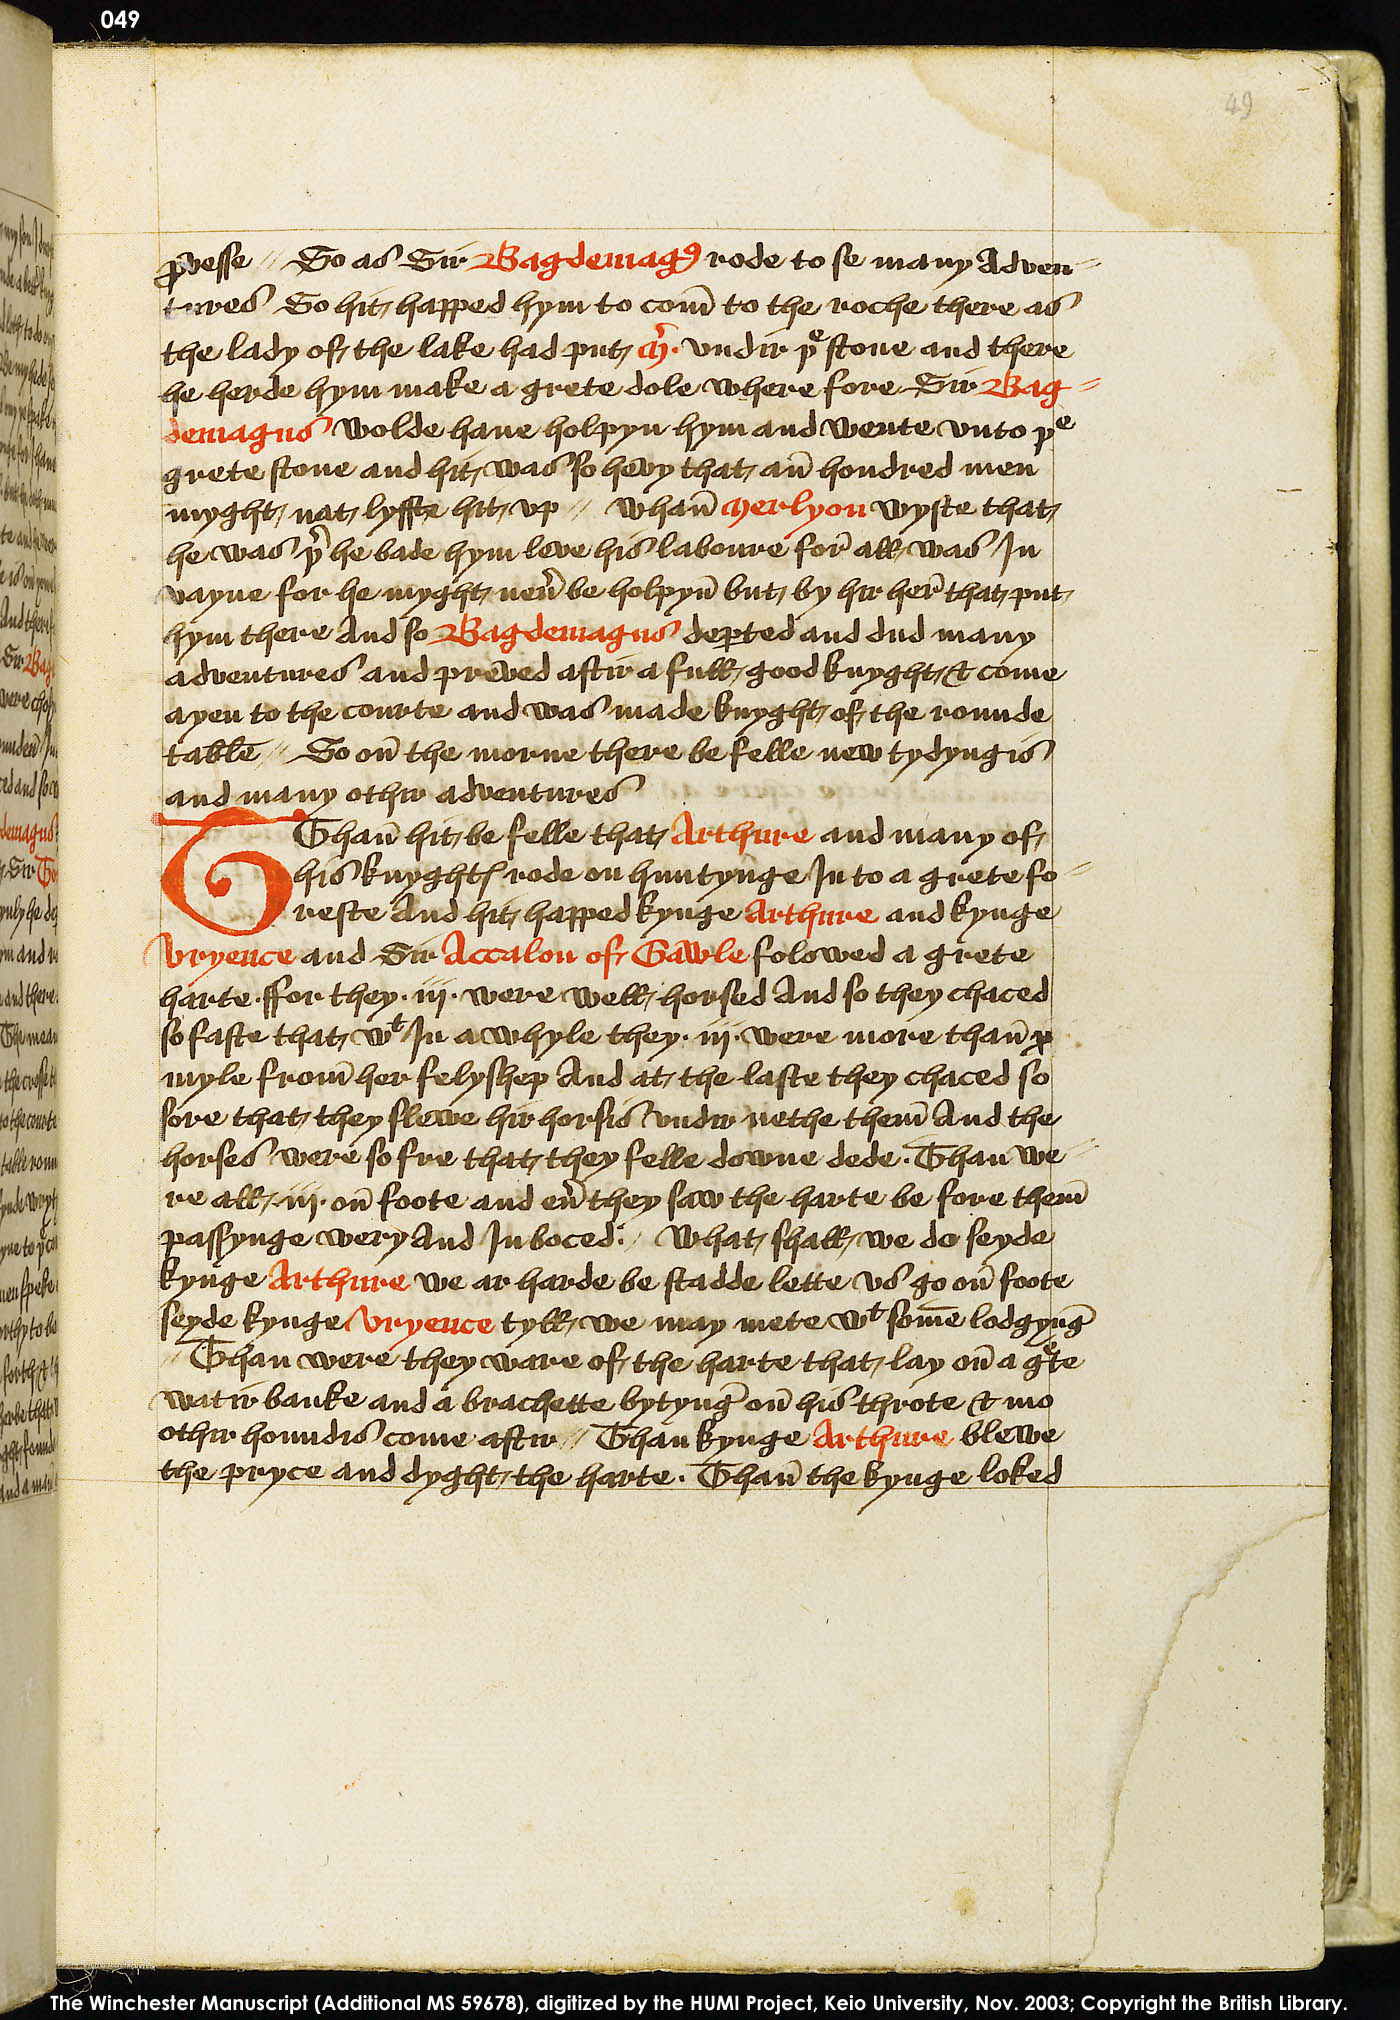 049
49
ꝓvesse // So as Sir Bagdemagꝰ rode to se many Adven=
tures So hit happed hym to com̄ to the roche there as
the lady of the lake had put M̓. vndir þᵉ stone and there
he herde hym make a grete dole where fore Sir Bag=
demagus wolde haue holpyn hym and wente vnto þᵉ
grete stone and hit was so hevy that an̄ hondred men
myght nat lyffte hit vp // whan̄ Merlyon wyste that
he was þ̓ he bade hym leve his laboure for̄ all was In
vayne for he myght neu̓ be holpyn̄ but by hir her̄ that put
hym there And so Bagdemagus deꝑted and dud many
adventures and preved aftir a full good knyght & come
ayen to the courte and was made knyght of the rounde
table // So on̄ the morne there be felle new tydyngis
and many othir adventures
Than̄ hit be felle that Arthure and many of
his knyghtꝭ rode on huntynge In to a grete fo=
reste And hit happed kynge Arthure and kynge
Vryence and Sir Accalon of Gawle folowed a grete
harte ffor they .iij. were well horsed And so they chaced
so faste that wᵗ In a whyle they .iij. were more than̄ x
myle from̄ her felyshep And at the laste they chaced so
sore that they slewe hir horsis vndir nethe them̄ And the
horses were so fre that they felle downe dede. Than we=
re all .iij. on̄ foote and eu̓ they saw the harte be fore them̄
passynge wery And In boced // What shall we do seyde
kynge Arthure we ar harde be stadde lette vs go on̄ foote
seyde kynge Vryence tyll we may mete wᵗ som̄e lodgynḡ
// Than were they ware of the harte that lay on̄ a gᵉte
watir banke and a brachette bytynḡ on̄ his throte & mo
othir houndis come aftir // Than kynge Arthure blewe
the pryce and dyght the harte. Than̄ the kynge loked
The Winchester Manuscript (Additional MS 59678), digitized by the HUMI Project, Keio University, Nov. 2003; Copyright the British Library.